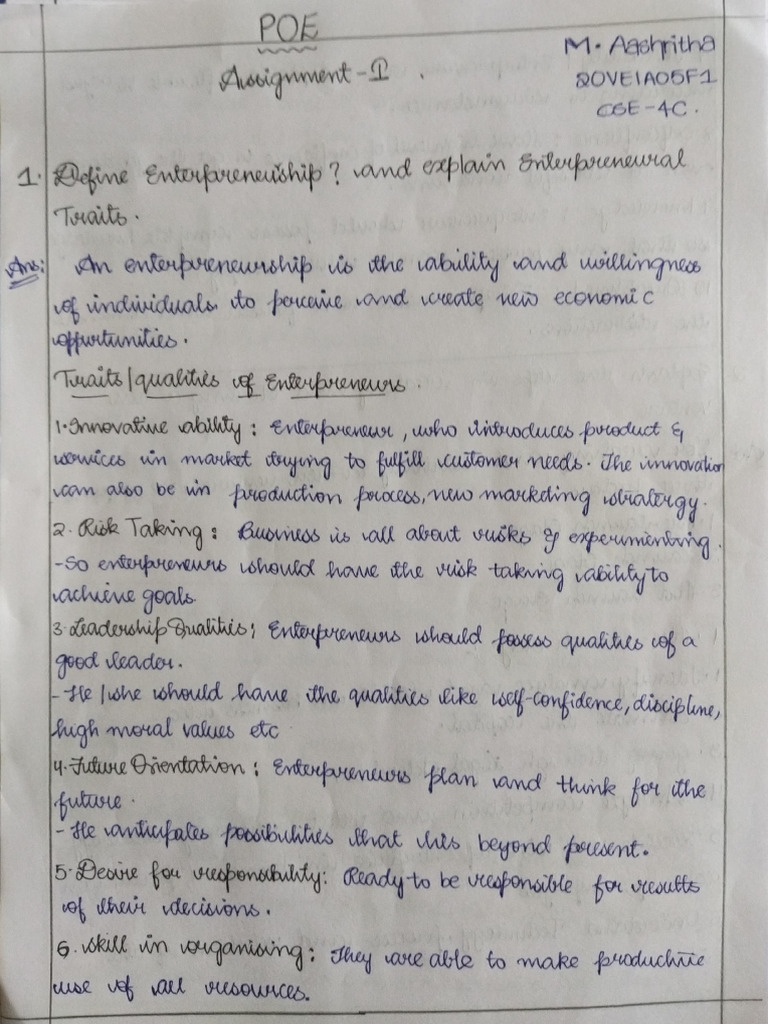 POE
Assignment-I.
M. Aashritha
20VE1A05F1
CSE-4C.
1. Define Enterpreneuship? and explain Enterpreneural
Traits.
Ans: An enterpreneurship is the ability and willingness
of individuals to perceive and create new economic
opportunities.
Traits/qualities of Enterpreneurs.
1. Innovative ability: Enterpreneur, who introduces product &
services in market trying to fulfill customer needs. The innovation
can also be in production process, new marketing stratergy.
2. Risk Taking: Business is all about risks & experimenting.
- So enterpreneurs should have the risk taking ability to
achieve goals
3. Leadership Qualities: Enterpreneurs should possess qualities of a
good leader.
- He/she should have the qualities like self-confidence, discipline,
high moral values etc
4. Future Orientation: Enterpreneurs plan and think for the
future.
- He anticipates possibilities that lies beyond present.
5. Desire for responsibility: Ready to be responsible for results
of their decisions.
6. Skill in organising: They are able to make productive
use of all resources.